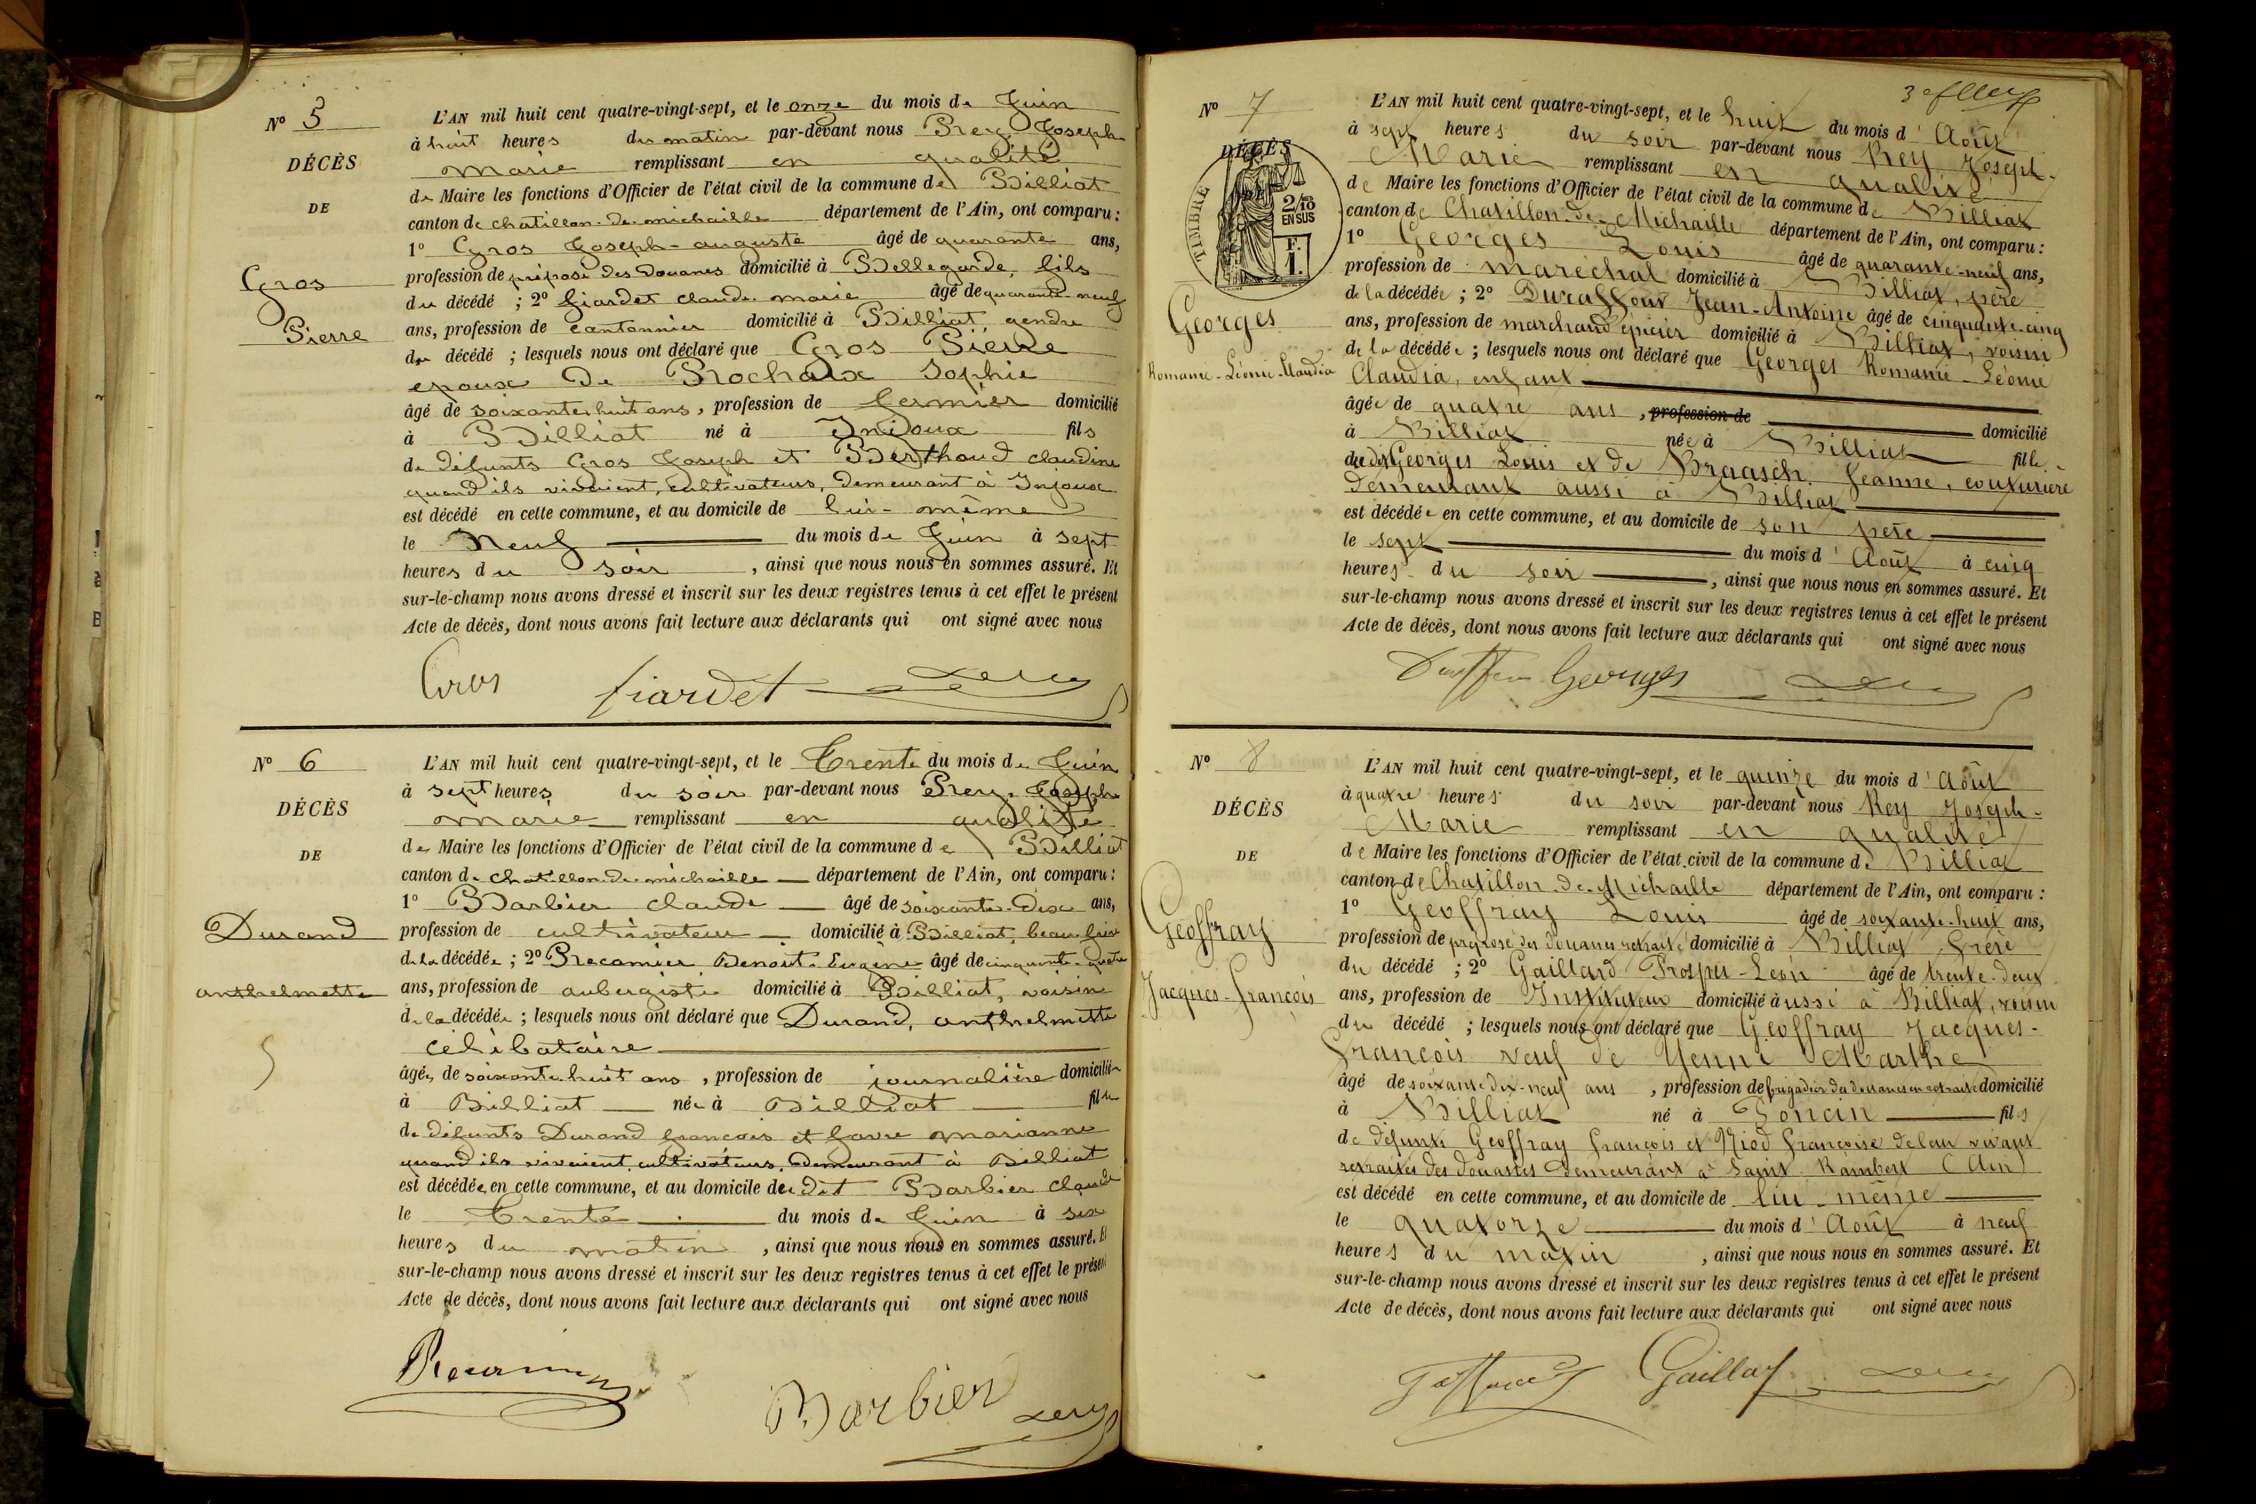 N° 5
DÉCÈS
DE
Gros
Pierre
L'AN mil huit cent quatre-vingt-sept, et le onze du mois de Juin
à huit heures du matin par-devant nous Rey Joseph
Marie remplissant en qualité
de Maire les fonctions d'Officier de l'état civil de la commune de Billiat
canton de Chatillon-de-michaille département de l'Ain, ont comparu :
1° Gros Joseph-auguste âgé de quarante ans,
profession de préposé des Douanes domicilié à Bellegarde, fils
du décédé ; 2° fiardet claude marie âgé de quarante-neuf
ans, profession de cantonnier domicilié à Billiat, gendre
du décédé ; lesquels nous ont déclaré que Gros Pierre
epoux De Prochaix Sophie
âgé de soixante huit ans, profession de fermier domicilié
à Billiat né à Injoux fils
de défunts Gros Joseph et Berthoud claudine
quand ils vivaient, cultivateurs, Demeurant à Injoux
est décédé en cette commune, et au domicile de lui-même
le Neuf du mois de Juin à sept
heures du soir, ainsi que nous nous en sommes assuré. Et
sur-le-champ nous avons dressé et inscrit sur les deux registres tenus à cet effet le présent
Acte de décès, dont nous avons fait lecture aux déclarants qui ont signé avec nous
Gros fiardet Rey
N° 6
DÉCÈS
DE
Durand
anthelmette
L'AN mil huit cent quatre-vingt-sept, et le Trente du mois de Juin
à sept heures du soir par-devant nous Rey Joseph
marie remplissant en qualité
de Maire les fonctions d'Officier de l'état civil de la commune de Billiat
canton de Chatillon-de-michaille département de l'Ain, ont comparu :
1° Barbier claude âgé de soixante-Dix ans,
profession de cultivateur domicilié à Billiat, beau-frère
de la décédée ; 2° Recamier Benoit-Eugène âgé de cinquante-quatre
ans, profession de aubergiste domicilié à Billiat, voisin
de la décédée ; lesquels nous ont déclaré que Durand, anthelmette
célibataire
âgée de soixante huit ans, profession de journalière domiciliée
à Billiat née à Billiat fille
de défunts Durand françois et favre marianne
quand ils vivaient, cultivateurs, Demeurant à Billiat
est décédée en cette commune, et au domicile de dit Barbier claude
le Trente du mois de Juin à six
heures du matin, ainsi que nous nous en sommes assuré. Et
sur-le-champ nous avons dressé et inscrit sur les deux registres tenus à cet effet le présent
Acte de décès, dont nous avons fait lecture aux déclarants qui ont signé avec nous
Recamier
Barbier Rey
N° 7
DÉCÈS
DE
TIMBRE
2/10
EN SUS
F.
1.
Georges
Romanie-Léonie-Claudia
L'AN mil huit cent quatre-vingt-sept, et le huit du mois d'Août
à sept heures du soir par-devant nous Rey Joseph-
Marie remplissant en qualité
de Maire les fonctions d'Officier de l'état civil de la commune de Billiat
canton de Chatillon-de-Michaille département de l'Ain, ont comparu :
1° Georges Louis âgé de quarante-neuf ans,
profession de maréchal domicilié à Billiat, père
de la décédée ; 2° Duraffour Jean-Antoine âgé de cinquante-cinq
ans, profession de marchand épicier domicilié à Billiat, voisin
de la décédée ; lesquels nous ont déclaré que Georges Romanie-Léonie
Claudia, enfant
âgée de quatre ans, profession de domicilié
à Billiat née à Billiat fille
du dit Georges Louis et de Braasch Jeanne, couturière
demeurant aussi à Billiat
est décédée en cette commune, et au domicile de son père
le sept du mois d'Août à cinq
heures du soir, ainsi que nous nous en sommes assuré. Et
sur-le-champ nous avons dressé et inscrit sur les deux registres tenus à cet effet le présent
Acte de décès, dont nous avons fait lecture aux déclarants qui ont signé avec nous
Georges Rey
N° 8
DÉCÈS
DE
Geoffray
Jacques-François
L'AN mil huit cent quatre-vingt-sept, et le quinze du mois d'Août
à quatre heures du soir par-devant nous Rey Joseph-
Marie remplissant en qualité
de Maire les fonctions d'Officier de l'état civil de la commune de Billiat
canton de Chatillon-de-Michaille département de l'Ain, ont comparu :
1° Geoffray Louis âgé de soixante-huit ans,
profession de préposé des douanes retraité domicilié à Billiat frère
du décédé ; 2° Gaillard Prosper-Léon âgé de trente-deux
ans, profession de Instituteur domicilié aussi à Billiat, voisin
du décédé ; lesquels nous ont déclaré que Geoffray Jacques-
François veuf de Yenni Marthe
âgé de soixante-dix-neuf ans, profession de brigadier des douanes en retraite domicilié
à Billiat né à Poncin fils
de défunts Geoffray François et Niod Françoise de leur vivant
retraités des douanes demeurant à Saint-Rambert (Ain)
est décédé en cette commune, et au domicile de lui-même
le quatorze du mois d'Août à neuf
heures du matin, ainsi que nous nous en sommes assuré. Et
sur-le-champ nous avons dressé et inscrit sur les deux registres tenus à cet effet le présent
Acte de décès, dont nous avons fait lecture aux déclarants qui ont signé avec nous
Gaillard Rey